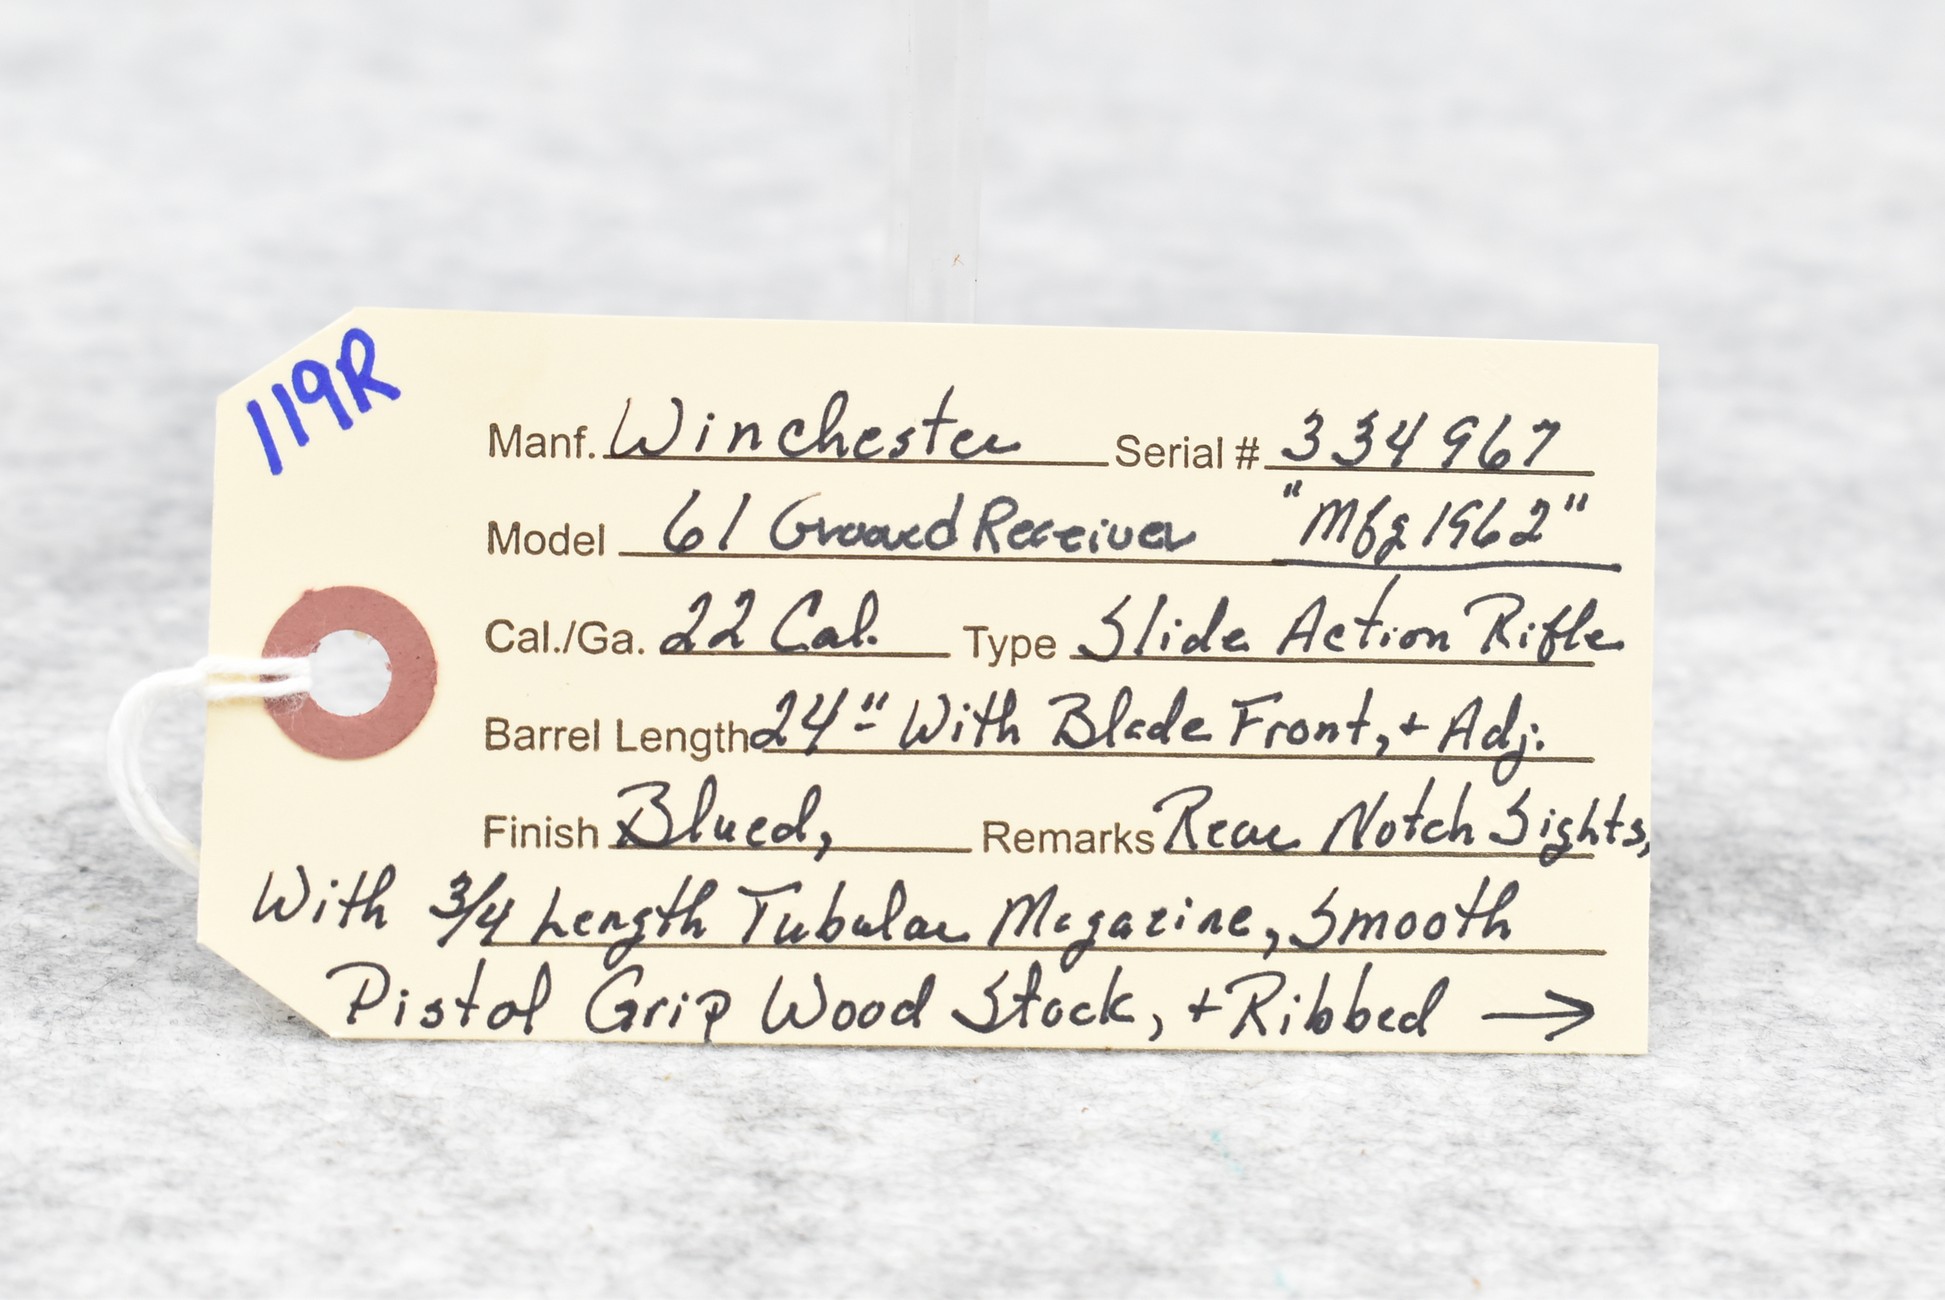 119R
Manf. Winchester Serial # 334967
Model 61 Grooved Receiver "Mfg 1962"
Cal./Ga. 22 Cal. Type Slide Action Rifle
Barrel Length 24" With Blade Front, + Adj.
Finish Blued, Remarks Rear Notch Sights,
With 3/4 Length Tubular Magazine, Smooth
Pistol Grip Wood Stock, + Ribbed →